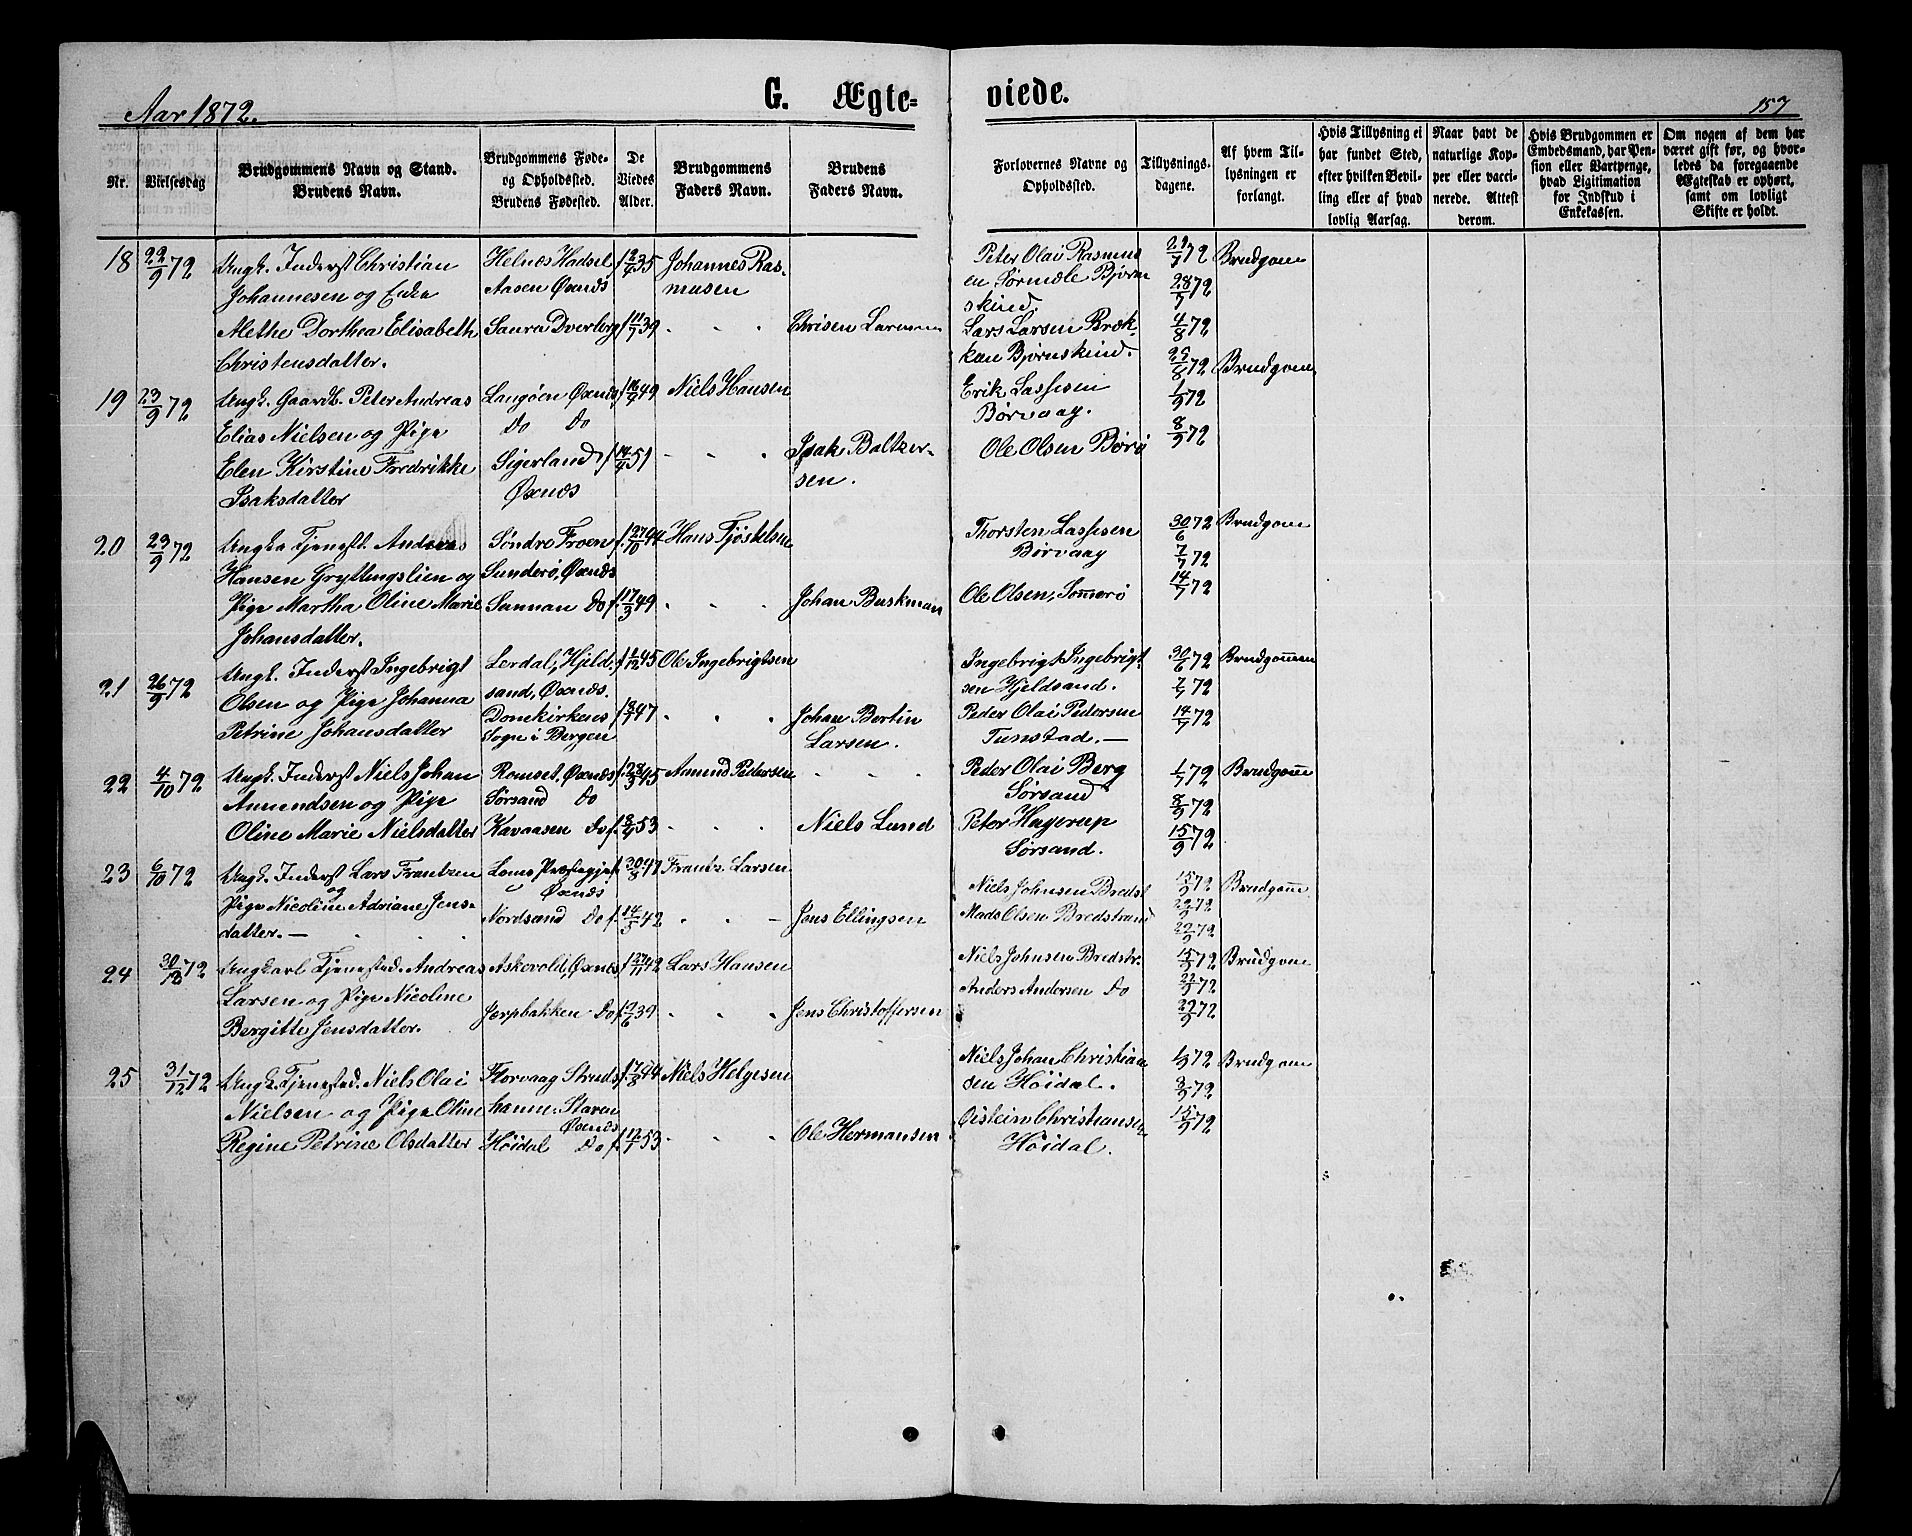 Aar 1872.
G. Ægte-
viede.
157
Nr.
Vielsesdag
Brudgommens Navn og Stand.
Brudens Navn.
Brudgommens Føde-
og Opholdssted.
Brudens Fødested.
De
Viedes
Alder.
Brudgommens
Faders Navn.
Brudens
Faders Navn.
Forlovernes Navne og
Opholdssted.
Tillysnings-
dagene.
Af hvem Til-
lysningen er
forlangt.
Hvis Tillysning ei
har fundet Sted,
efter hvilken Bevil-
ling eller af hvad
lovlig Aarsag.
Naar havt de
naturlige Kop-
per eller vacci-
nerede. Attest
derom.
Hvis Brudgommen er
Embedsmand, har Pen-
sion eller Vartpenge,
hvad Ligitimation
for Indskud i
Enkekassen.
Om nogen af dem har
været gift før, og hvor-
ledes da foregaaende
Ægtestad er ophørt,
samt om lovligt
Skifte er holdt.
18 22/9 72
Ungk. Inderst Christian
Johannesen og Enke
Alethe Dorthea Elisabeth
Christensdatter.
Helnes Hadsel
Aasen Øxnæs
Saura Dverberg
35
f. 11/7 39
Johannes Ras-
musen
Peter Olai Rasmus
en Sørmæle Bjørn
skind.
Lars Larsen Bræk-
kan Bjørnskind.
21/7 72
28/7 72
4/8 72
Brudgom
19 23/9 72
Ungk. Gaardb. Peter Andreas
Elias Nielsen og Pige
Elen Kirstine Fredrikke
Isaksdatter
Langøen Øxnæs
Do Do
Sigerland
Øxnæs
f. 16/9 49
f. 14/4 51
Niels Hansen
Isak Baltzer-
sen.
Erik Lassesen
Børvaag.
Ole Olsen Børø
25/8 72
1/9 72
8/9 72
Brudgom
20 23/9 72
Ungka Tjenest. Andreas
Hansen Gryttingslien og
Pige Martha Oline Marie
Johansdatter.
Søndre Froen
Sunderø, Øxnæs
Sannan Do
f. 27/10 44
f. 17/3 49
Hans Tjøstelsen
Johan Buskman
Thorsten Lassesen
Børvaag
Ole Olsen, Sommerø
30/6 72
7/7 72
14/7 72
Brudgom
21 26/9 72
Ungk. Inderst Ingebrigt
Olsen og Pige Johanna
Petrine Johansdatter
Lerdal, Hjeld
sand, Øxnæs.
Domkirkens
Sogn i Bergen
f. 1/12 45
f. 18/7 47
Ole Ingebrigtsen
Johan Bertin
Larsen.
Ingebrigt Ingebrigt
sen Hjeldsand.
Peder Olai Pedersen
Tunstad. —
30/6 72
7/7 72
14/7 72
Brudgommen
22 4/10 72
Ungk. Inderst Niels Johan
Amundsen og Pige
Oline Marie Nielsdatter
Romset, Øxnæs
Sørsand Do
Kavaasen Do
f. 28/3 45
f. 8/9 53
Amund Pedersen
Niels Lund
Peder Olai Berg
Sørsand
Peter Hagerup
Sørsand.
1/9 72
8/9 72
15/9 72
Brudgom
23 6/10 72
Ungk. Inderst Lars Frantzen
og
Pige Nicoline Adriane Jens-
datter. —
Loms Præstegjeld
Øxnæs
Nordsand Do
f. 30/8 47
f. 14/3 42
Frantz Larsen
Jens Ellingsen
Niels Johnsen Bredst.
Mads Olsen Bredstrand
15/9 72
22/9 72
29/9 72
Brudgom
24 30/12 72
Ungkarl Tjenested. Andreas
Larsen og Pige Nicoline
Bergitte Jensdatter.
Askevold, Øxnes
Jerpbakken Do
f. 29/11 42
39
Lars Hansen
Jens Christoffersen
Niels Johnsen Bredstr.
Anders Andersen Do
15/9 72
22/9 72
29/9 72
Brudgom
25 31/12 72
Ungk. Tjenested. Niels Olai
Nielsen og Pige Oline
Regine Petrine Olsdatter
Florvaag
Staven
Øxnes
Høidal Do
f. 7/8 44
f. 12/7 53
Niels Helgesen
Ole Hermansen
Niels Johan Christian
sen Høidal.
Øistein Christiansen
Høidal.
1/9 72
8/9 72
15/9 72
Brudgom